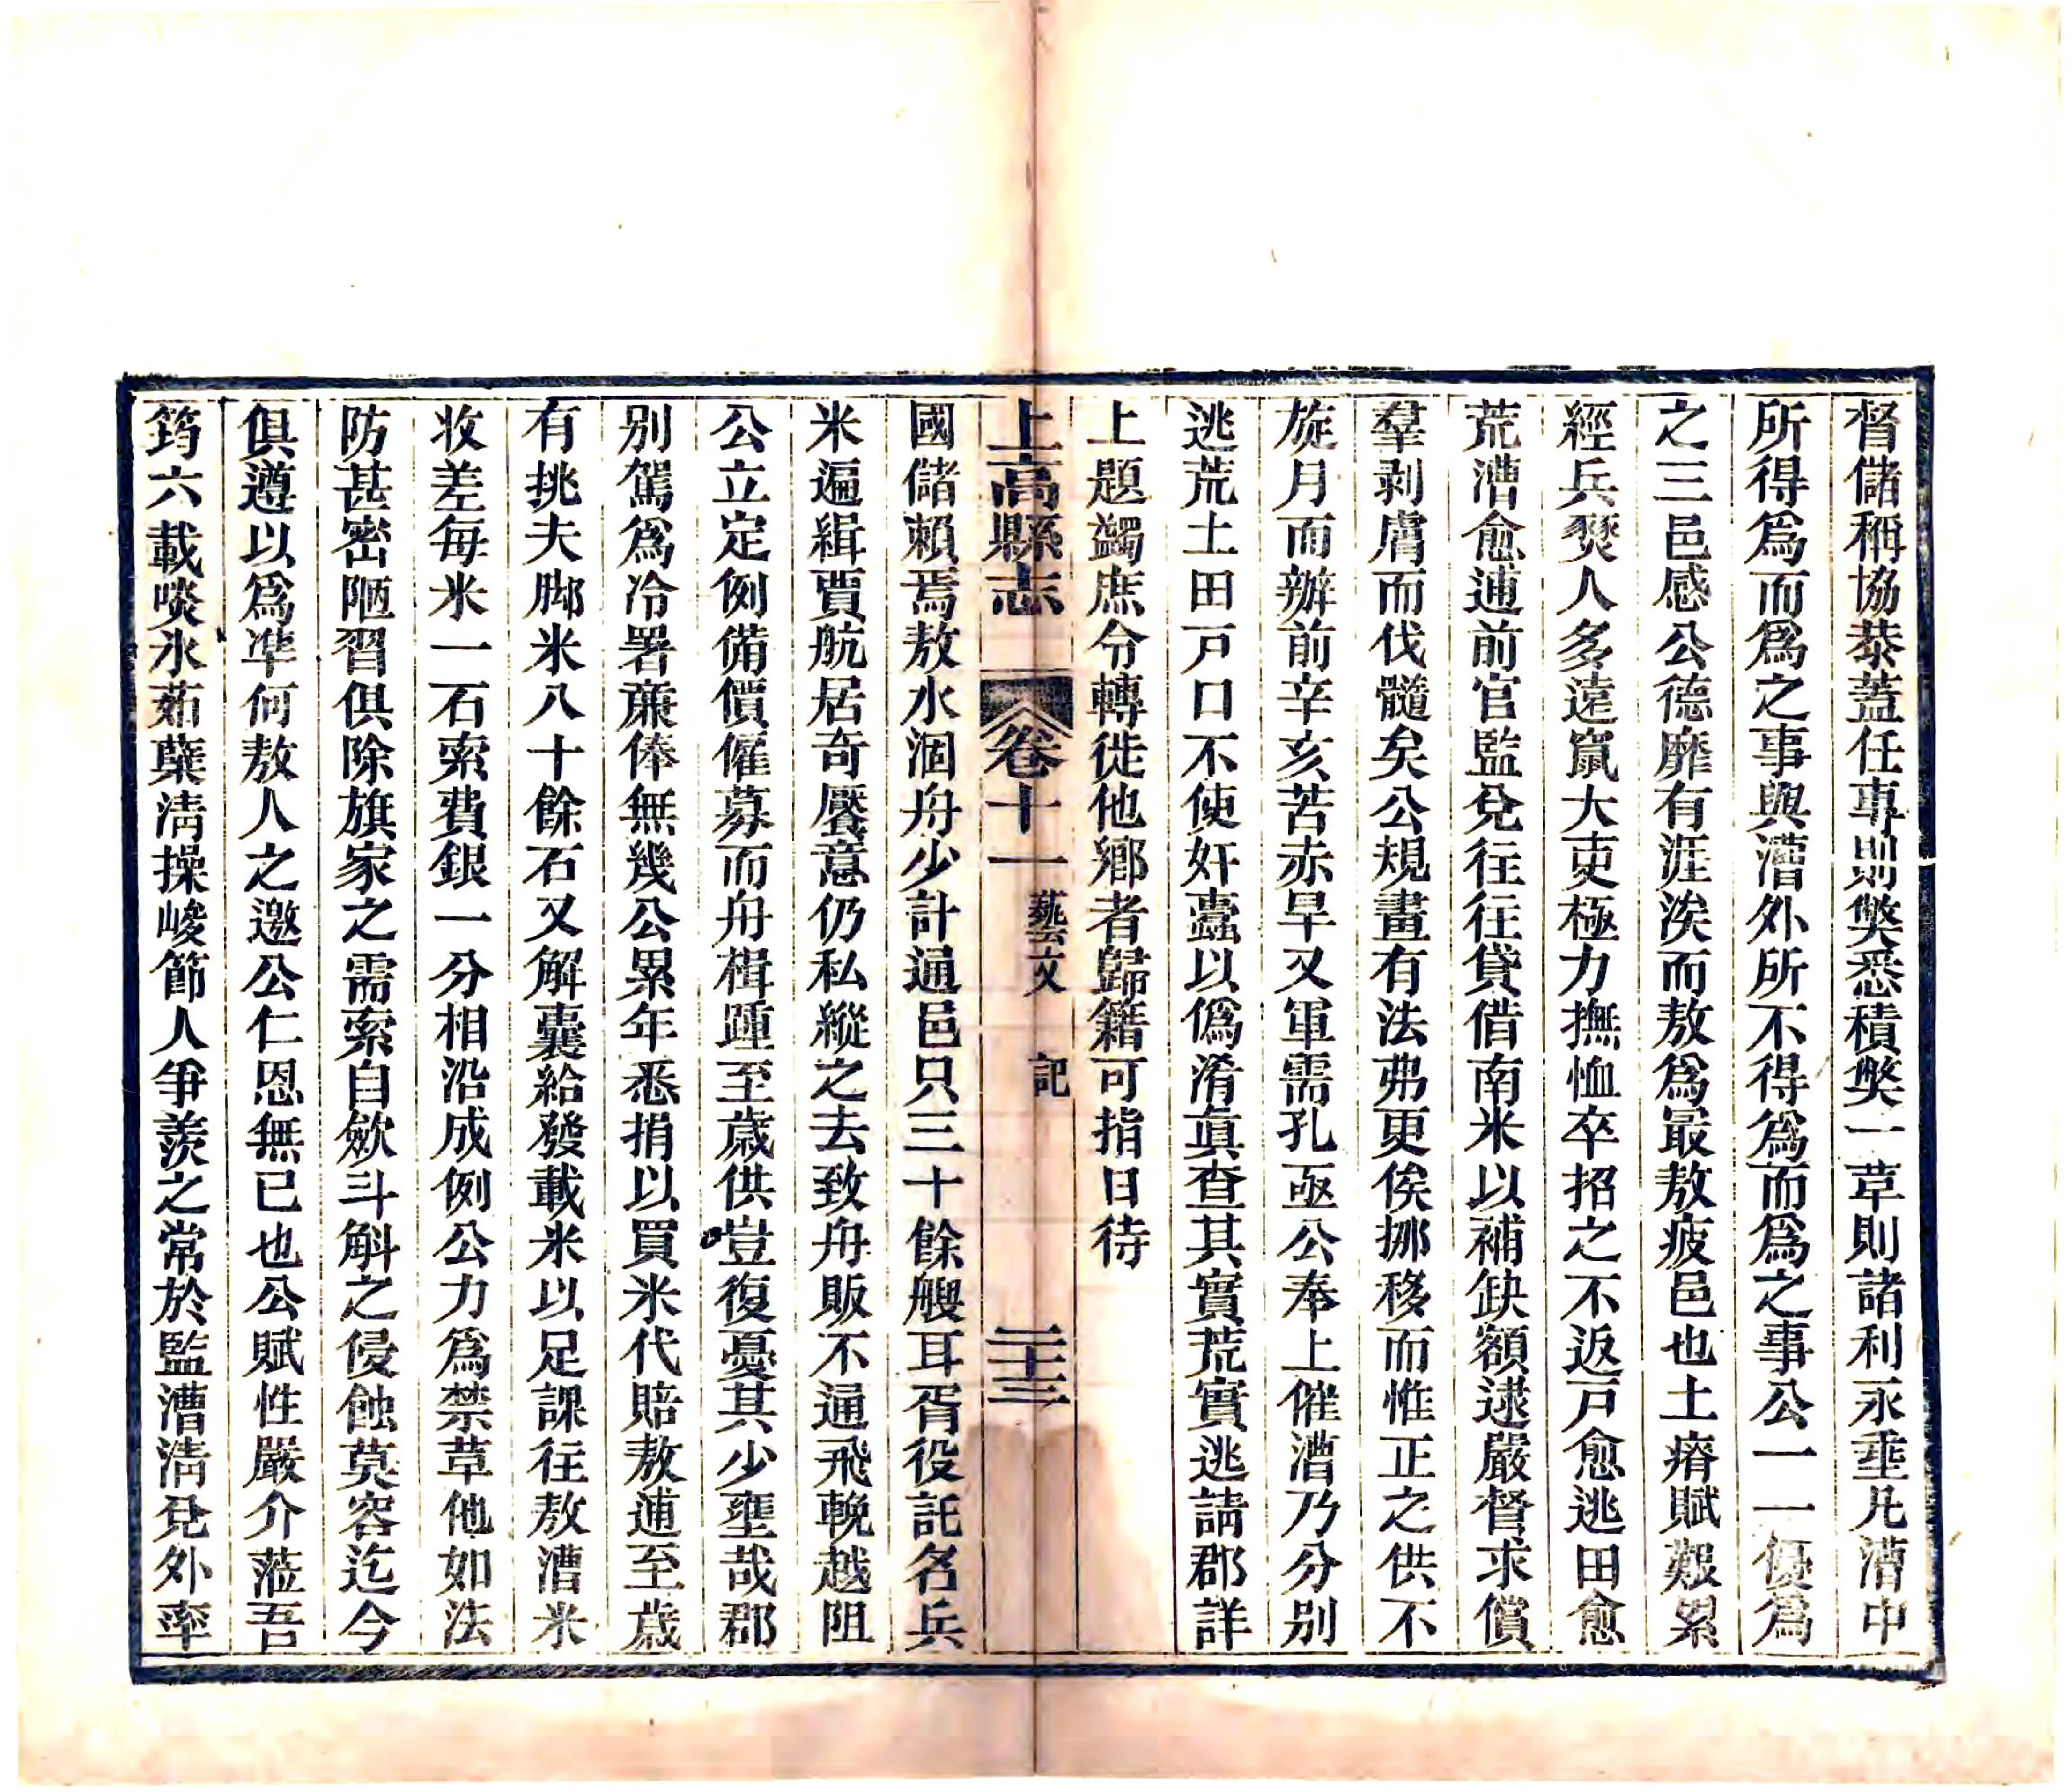 督儲稱協恭蓋任專則獘悉積獘一草則諸利永垂凡漕中
所得爲而爲之事與漕外所不得爲而爲之事公一一優爲
之三邑感公德靡有涯涘而敖爲最敖疲邑也土瘠賦艱累
經兵燹人多遠竄大吏極力撫恤卒招之不返戸愈逃田愈
荒漕愈逋前官監兌往往貸借南米以補缺額逮嚴督求償
羣剥膚而伐髓矣公規畫有法弗更俟挪移而惟正之供不
旋月而辦前辛亥苦赤旱又軍需孔亟公奉上催漕乃分别
逃荒土田戸口不使奸蠹以僞淆眞查其實荒實逃請郡詳
上題蠲庶令轉徙他鄕者歸籍可指日待
上高縣志 卷十一 藝文 記 二十三
國儲賴焉敖水涸舟少計通邑只三十餘艘耳胥役託名兵
米遍緝賈航居奇饜意仍私縱之去致舟販不通飛輓越阻
公立定例備價僱募而舟楫踵至歲供豈復憂其少壅哉郡
别駕爲冷署廉俸無幾公累年悉捐以買米代賠敖逋至歲
有挑夫脚米八十餘石又解囊給發載米以足課往敖漕米
收差每米一石索費銀一分相沿成例公力爲禁草他如法
防甚密陋習俱除旗家之需索自歛斗斛之侵蝕莫容迄今
俱遵以爲凖何敖人之邀公仁恩無已也公賦性嚴介蒞吾
筠六載啖氷茹蘗淸操峻節人爭羡之常於監漕淸兌外率